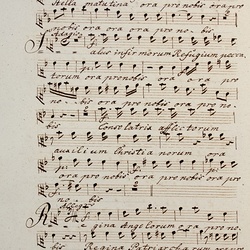 Stella matutina ora pro nobis ora pro
nobis ora pro nobis
Adagio
Salus infirmorum Refugium pecca
torum ora pro nobis ora ora pro
nobis ora pro nobis ora pro no
bis Consolatrix aflictorum
auxilium Christianorum ora
ora pro nobis ora pro nobis ora pro
no bis
Regina Angelorum ora pro no
bis Regina Patriarcharum